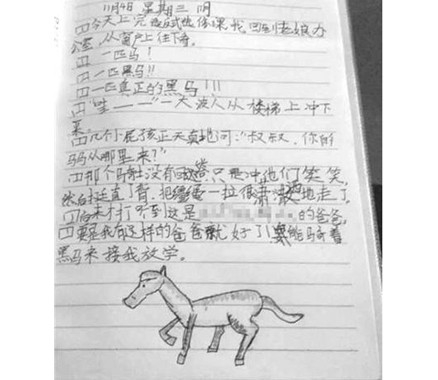 11月4日 星期三 阴
今天上完 课我回到老娘办
公室,从窗户上往下看。
一匹马!
一匹黑马!!
一匹真正的黑马!!!
"哇——"一大波人从楼梯上冲下
来。
几个小屁孩正天真地问:"叔叔,你的
马从哪里来?"
那个马 没有 只是冲他们笑笑,
然后 直了背,把缰绳一拉很 地走了。
后来才打听到这是 的爸爸,
要是我有这样的爸爸就好了! 能骑着
黑马来接我放学。